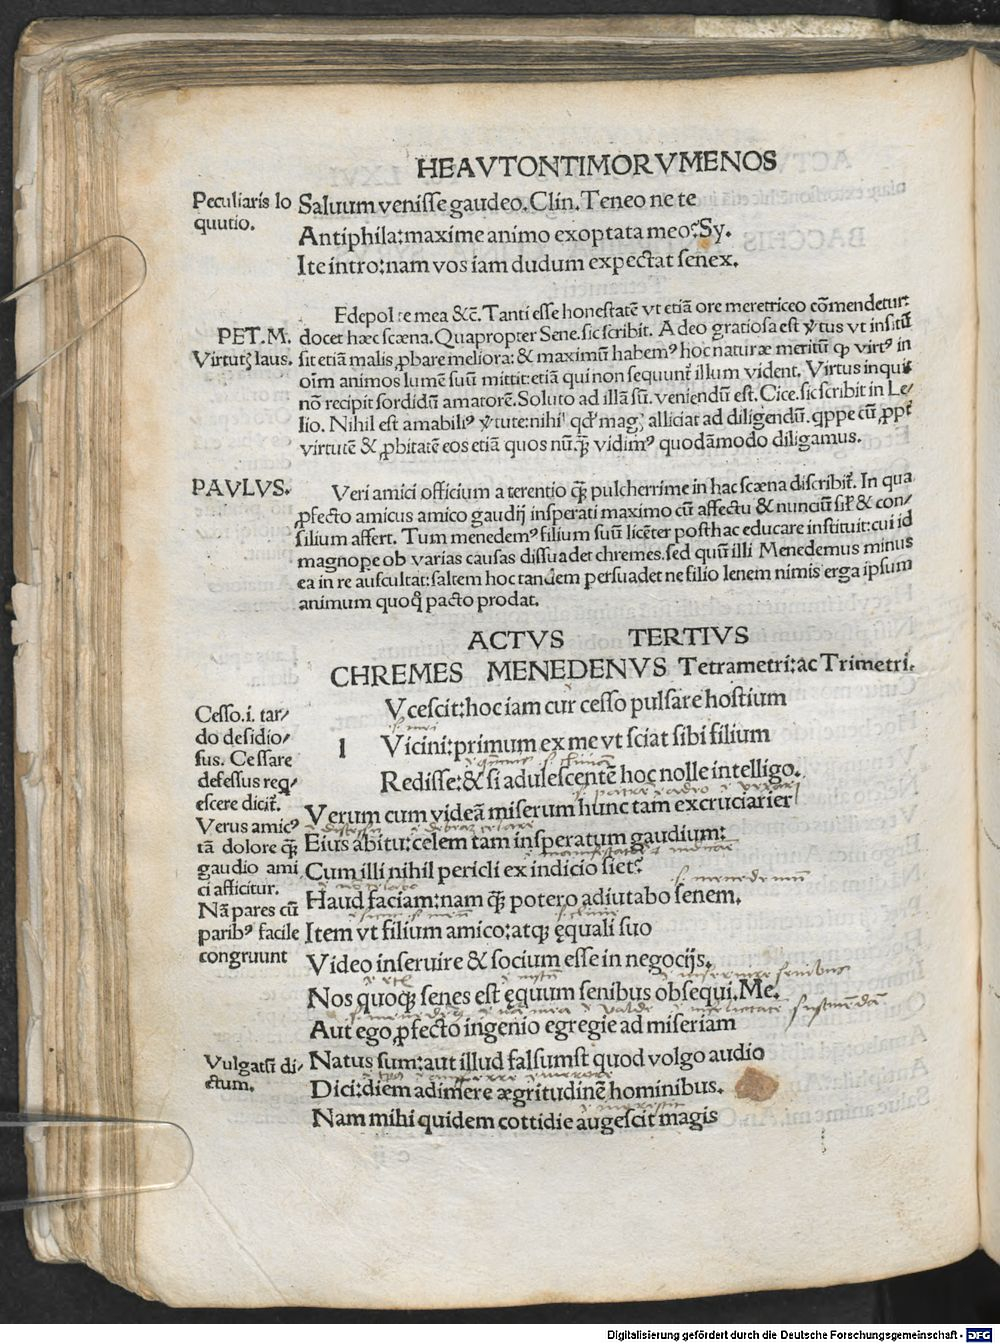 HEAVTONTIMORVMENOS
Peculiaris lo
quutio.
Saluum venisse gaudeo. Clin. Teneo ne te
Antiphila: maxime animo exoptata meo? Sy.
Ite intro: nam vos iam dudum expectat senex.
PET. M.
Virtutꝭ laus.
Edepol te mea &c̄. Tanti esse honestatē vt etiā ore meretriceo cōmendetur:
docet hæc scæna. Quapropter Sene. sic scribit. Adeo gratiosa est v̓tus vt insitū
sit etiā malis ꝓbare meliora: & maximū habemꝰ hoc naturæ meritū ꝙ virtꝰ in
oīm animos lumē suū mittit: etiā qui non sequunt̄ illum vident. Virtus inquit
nō recipit sordidū amatorē. Soluto ad illā sū. veniendū est. Cice. sic scribit in Le/
lio. Nihil est amabiliꝰ v̓tute: nihil qd̓ magꝭ alliciat ad diligendū. qppe cū ꝓpt̓
virtutē & ꝓbitatē eos etiā quos nū.ꝗ̄ vidimꝰ quodāmodo diligamus.
PAVLVS.
Veri amici officium a terentio ꝗ̄ pulcherrime in hac scæna discribit̄. In qua
ꝓfecto amicus amico gaudij insperati maximo cū affectu & nunciū sił & con/
silium affert. Tum menedemꝰ filium suū licēter posthac educare instituit: cui id
magnope ob varias causas dissuadet chremes. sed quū illi Menedemus minus
ea in re auscultat: saltem hoc tandem persuadet ne filio lenem nimis erga ipsum
animum quoq̄ pacto prodat.
ACTVS TERTIVS
CHREMES MENEDENVS Tetrametri: ac Trimetri.
Cesso. i. tar/
do desidio/
sus. Cessare
defessus req/
escere dicit̄.
Verus amicꝰ
tā dolore ꝗ̄
gaudio ami
ci afficitur.
Nā pares cū
paribꝰ facile
congruunt
l
Vcescit: hoc iam cur cesso pulsare hostium
Vicini: primum ex me vt sciat sibi filium
Redisse: & si adulescentē hoc nolle intelligo.
Verum cum videā miserum hunc tam excruciarier
Eius abitu: celem tam insperatum gaudium:
Cum illi nihil pericli ex indicio siet?
Haud faciam: nam ꝗ̄ potero adiutabo senem.
Item vt filium amico: atqꝫ ęquali suo
Video inseruire & socium esse in negocijs.
Nos quoqꝫ senes est ęquum senibus obsequi. Me.
Aut ego ꝓfecto ingenio egregie ad miseriam
Vulgatū di/
ctum.
Natus sum: aut illud falsumst quod volgo audio
Dici: diem adimere ægritudinē hominibus.
Nam mihi quidem cottidie augescit magis
Digitalisierung gefördert durch die Deutsche Forschungsgemeinschaft - DFG